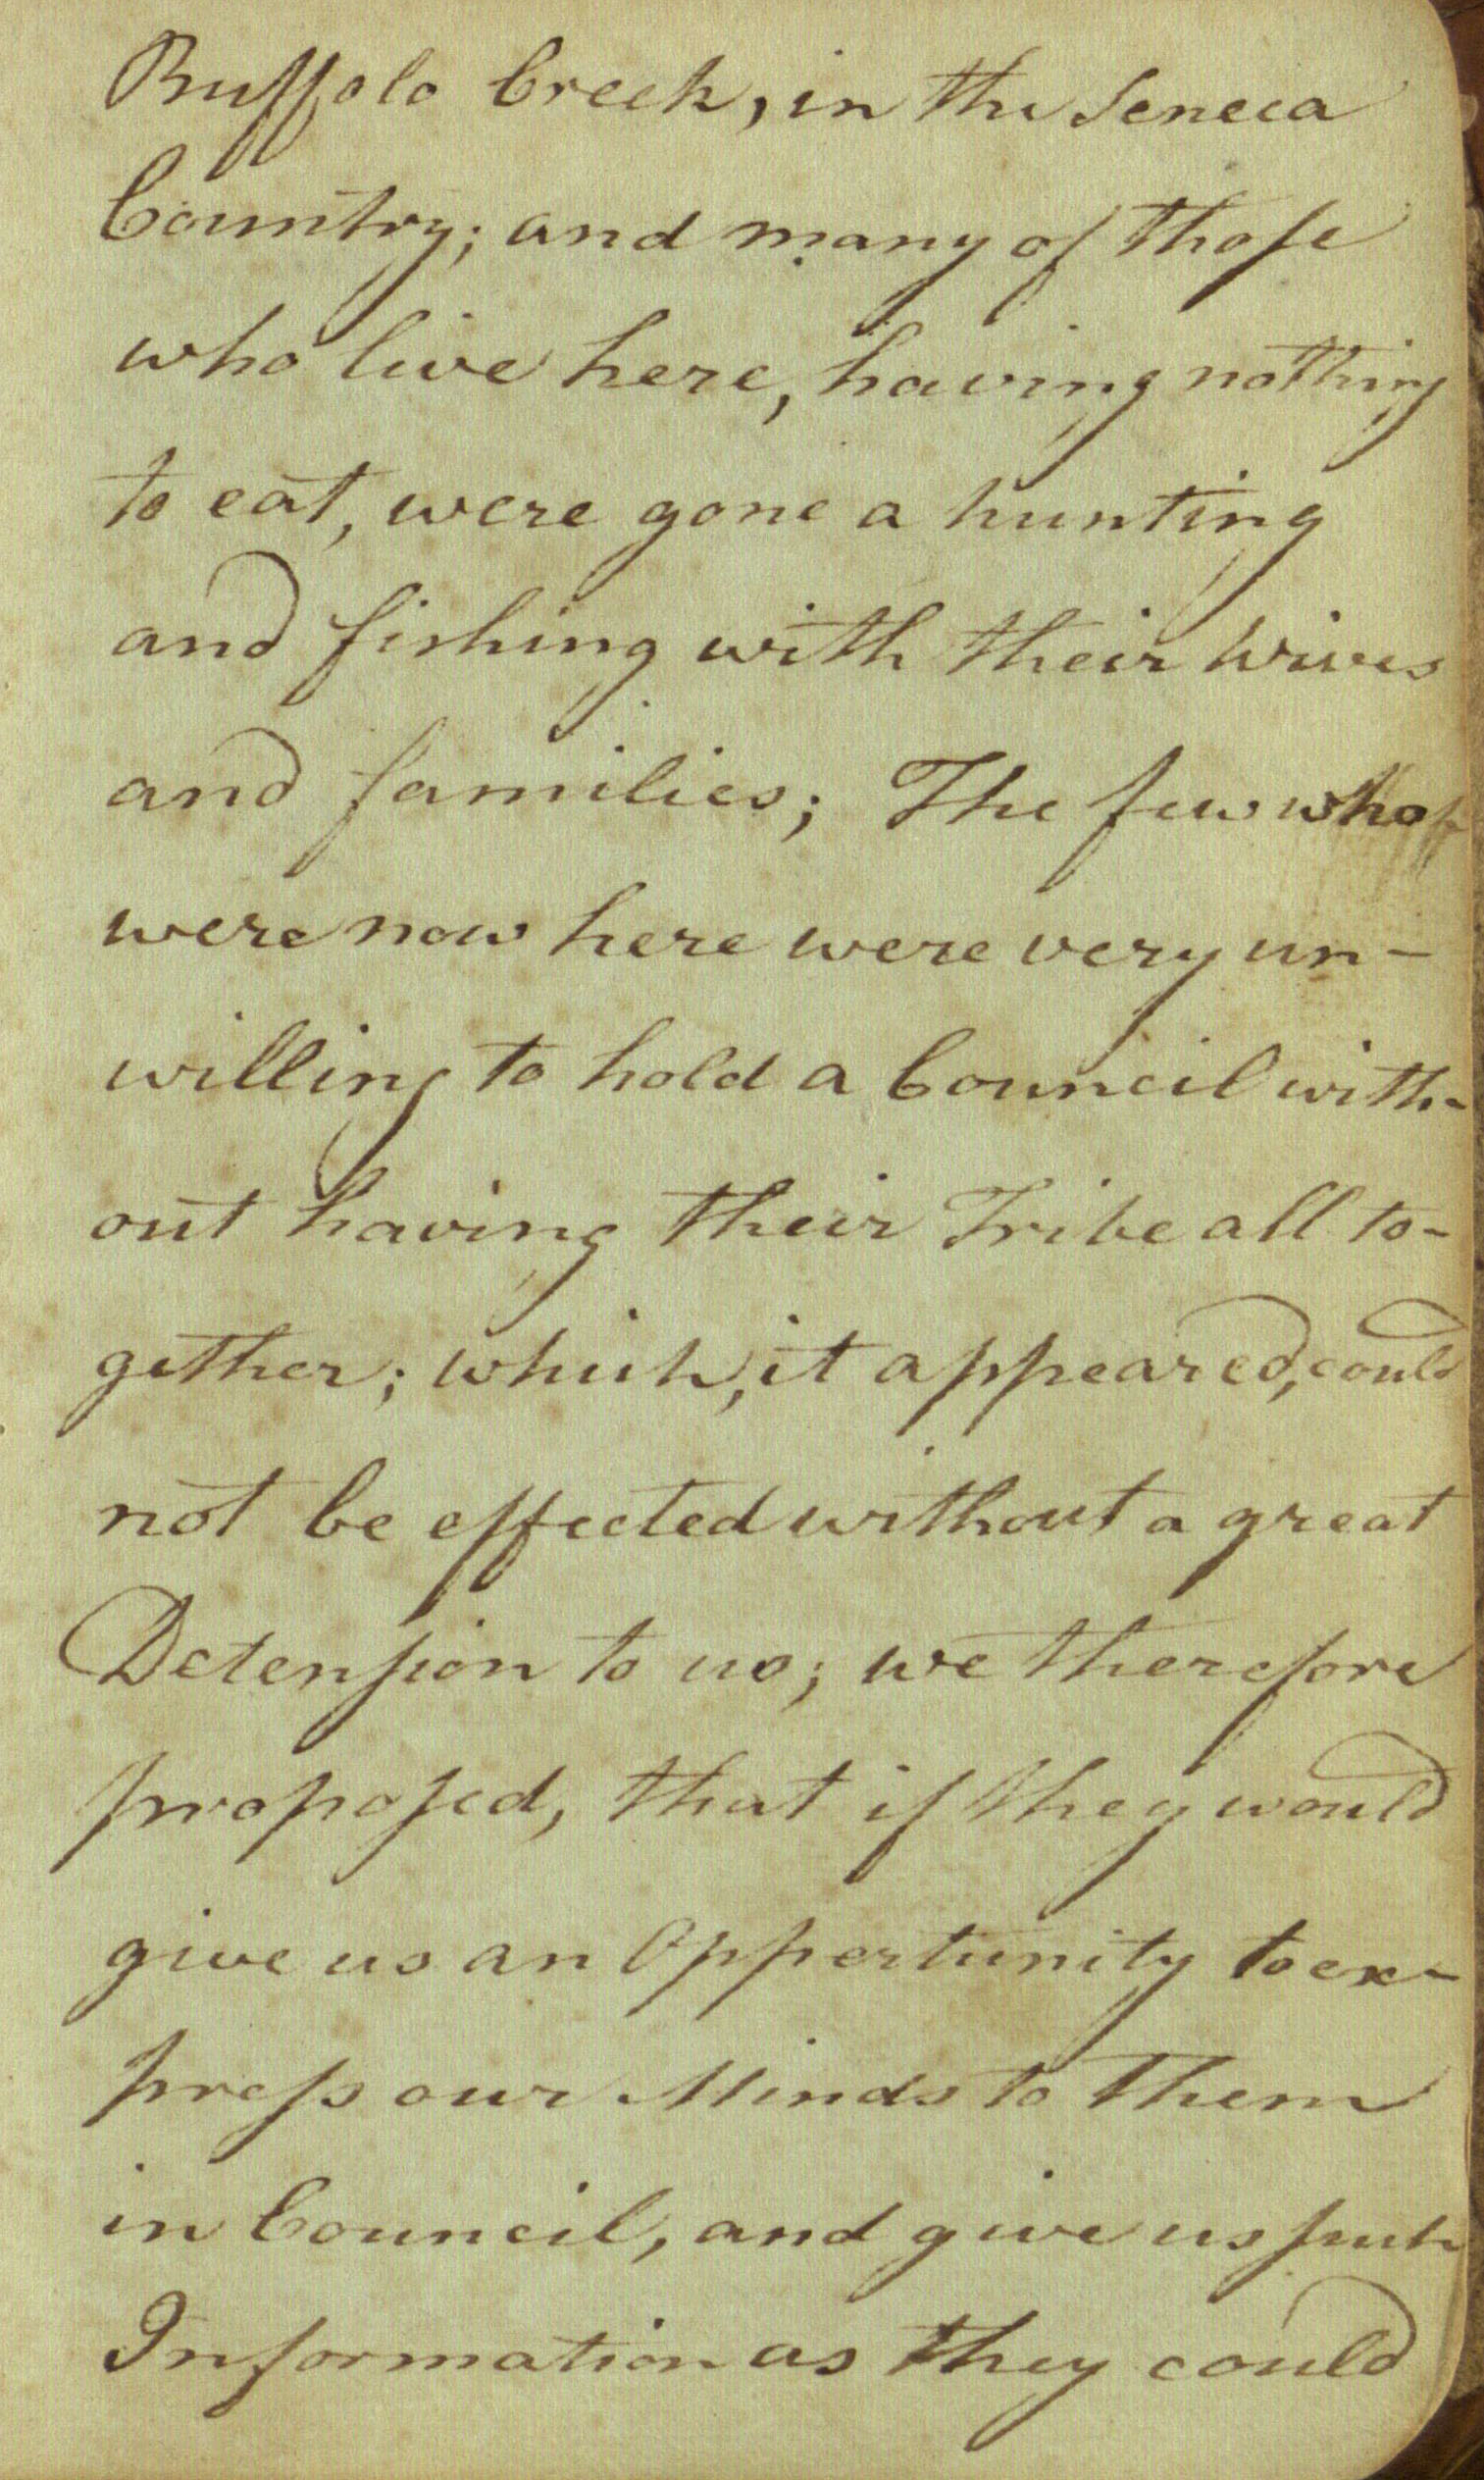 Buffolo Creek, in the Seneca
Country; and many of those
who live here, having nothing
to eat, were gone a hunting
and fishing with their Wives
and families; The few who
were now here were very un-
willing to hold a Council with-
out having their Tribe all to-
gether; which, it appeared, could
not be effected without a great
Detension to us; we therefore
proposed, that if they would
give us an Oppertunity to ex-
press our Minds to them
in Council, and give us such
Information as they could